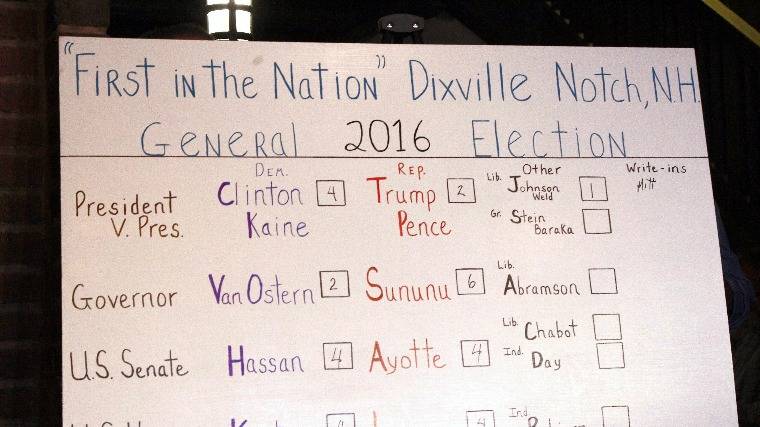 "First in the Nation" Dixville Notch, N.H.
General 2016 Election
Dem. Rep. Other Write-ins
President Clinton 4 Trump 2 Lib. Johnson 1
Weld
V. Pres. Kaine Pence Gr. Stein
Baraka
Governor Van Ostern 2 Sununu 6 Lib. Abramson
Lib. Chabot
U.S. Senate Hassan 4 Ayotte 4 Ind. Day
4 4 Ind.